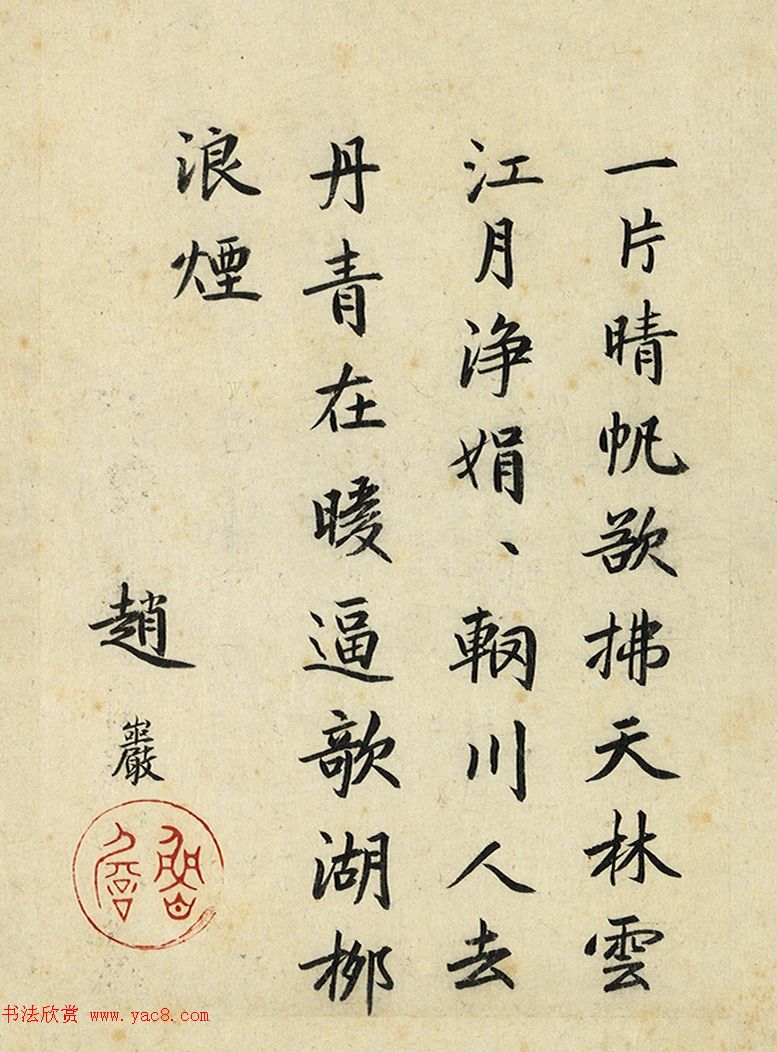 一片晴帆欲拂天林雲
江月淨娟、輞川人去
丹青在暖逼歌湖柳
浪煙
趙巖
书法欣赏 www.yac8.com